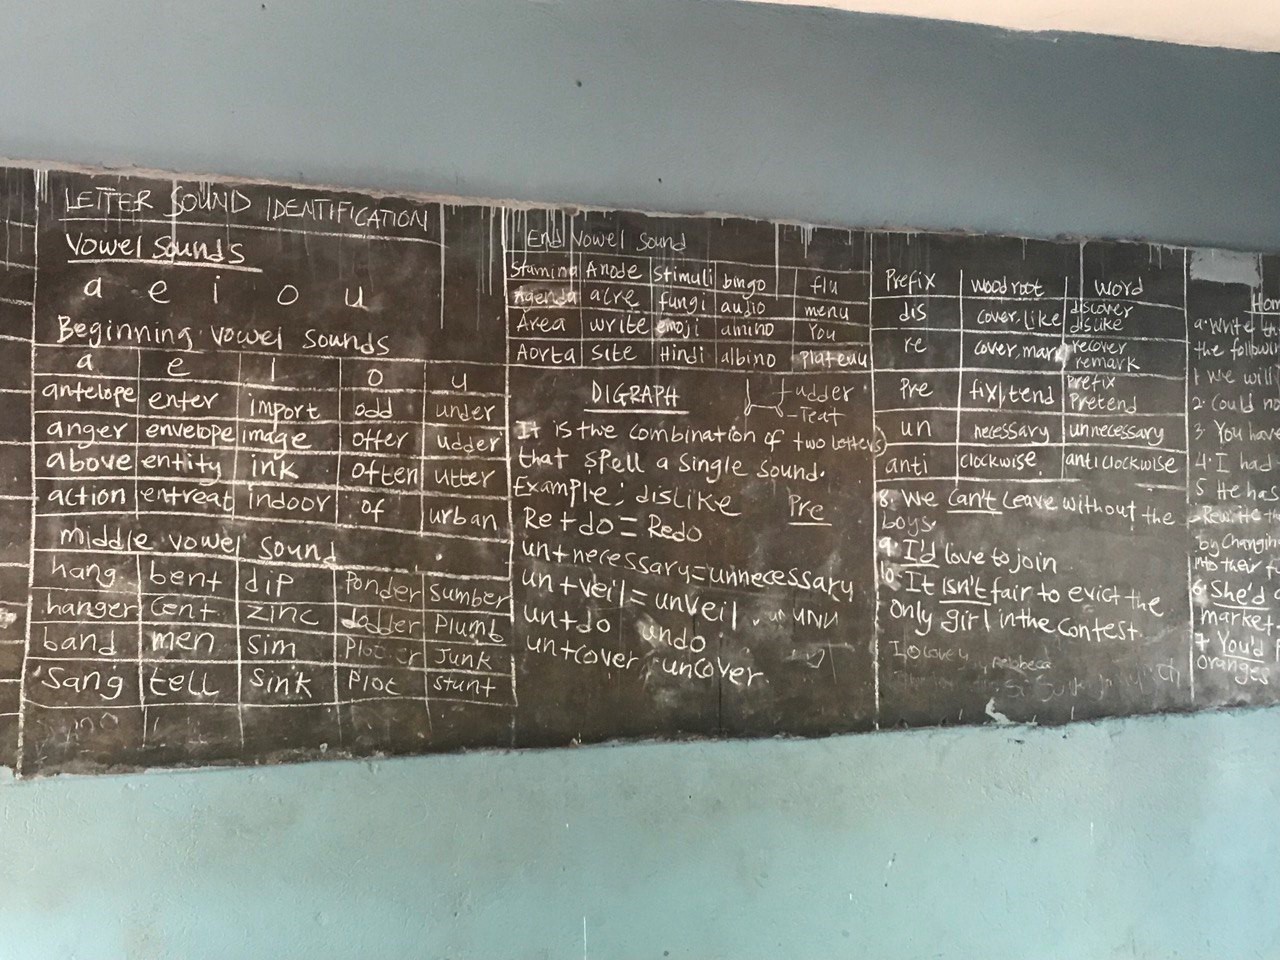 LETTER SOUND IDENTIFICATION
Vowel Sounds
a e i o u
Beginning vowel sounds
a e I o u
antelope enter import odd under
anger envelope image offer udder
above entity ink often utter
action entreat indoor of urban
middle vowel sound
hang bent dip Ponder Sumber
hanger Cent zinc dodder Plumb
band men sim Junk
Sang tell Sink Plot stunt
End Vowel Sound
Stamina Anode Stimuli bingo flu
Agenda acre fungi audio menu
Area write emoji amino You
Aorta site Hindi albino Plateau
DIGRAPH
udder
Teat
It is the combination of two letters)
that spell a single sound.
Example: dislike Pre
Re+do = Redo
un+necessary=unnecessary
un+veil = unveil.
un+do undo
un+cover uncover.
Prefix wood root word
dis cover, like discover
dislike
re cover, mark recover
remark
Pre fix, tend Prefix
Pretend
un necessary unnecessary
anti clockwise anticlockwise
8. We can't Leave without the
boys.
9. I'd love to join
10. It isn't fair to evict the
only girl in the contest.
a. Write
the
1 We will
2. Could
3. You have
4. I had
5 He has
by
into their
6. She'd
market.
7 You'd
oranges